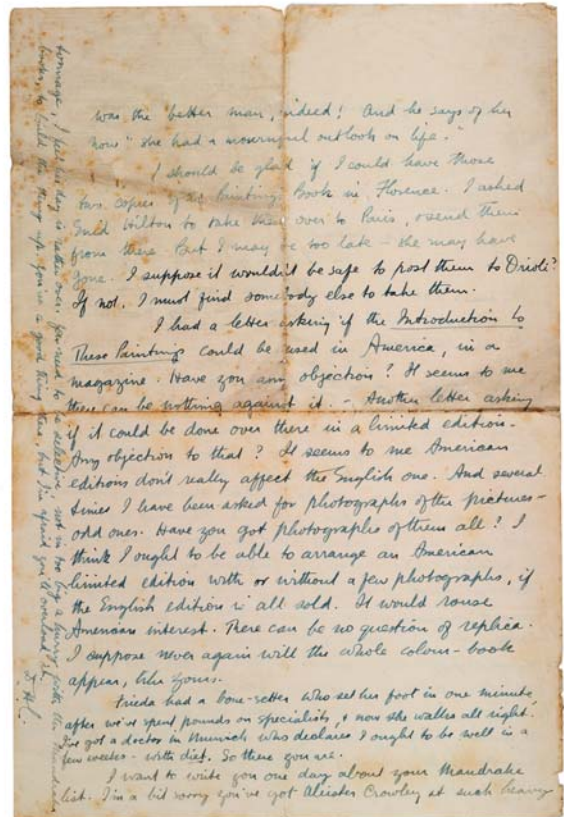 was the better man, indeed! And he says of her
now "she had a mournful outlook on life."
I should be glad if I could have those
two copies of the Paintings Book in Florence. I asked
Enid Hilton to take them over to Paris, & send them
from there. But I may be too late – she may have
gone. I suppose it wouldn't be safe to post them to Orioli?
If not, I must find somebody else to take them.
I had a letter asking if the Introduction to
These Paintings could be used in America, in a
magazine. Have you any objection? It seems to me
there can be nothing against it. – Another letter asking
if it could be done over there in a limited edition –
Any objection to that? It seems to me American
editions don't really affect the English one. And several
times I have been asked for photographs of the pictures –
odd ones. Have you got photographs of them all? I
think I ought to be able to arrange an American
limited edition with or without a few photographs, if
the English edition is all sold. It would rouse
American interest. There can be no question of replica.
I suppose never again will the whole colour-book
appear, like yours.
Frieda had a bone-setter who set her foot in one minute,
after we've spent pounds on specialists, & now she walks all right.
I've got a doctor in Munich who declares I ought to be well in a
few weeks – with diet. So there you are.
I want to write you one day about your Mandrake
list. I'm a bit sorry you've got Aleister Crowley at such heavy
tonnage, I feel his day is rather over. You need to be selective, not in too big a hurry with the Mandrake
books, to build the thing up. You're a good thing there, but I'm afraid you'll overload it.
DHL.